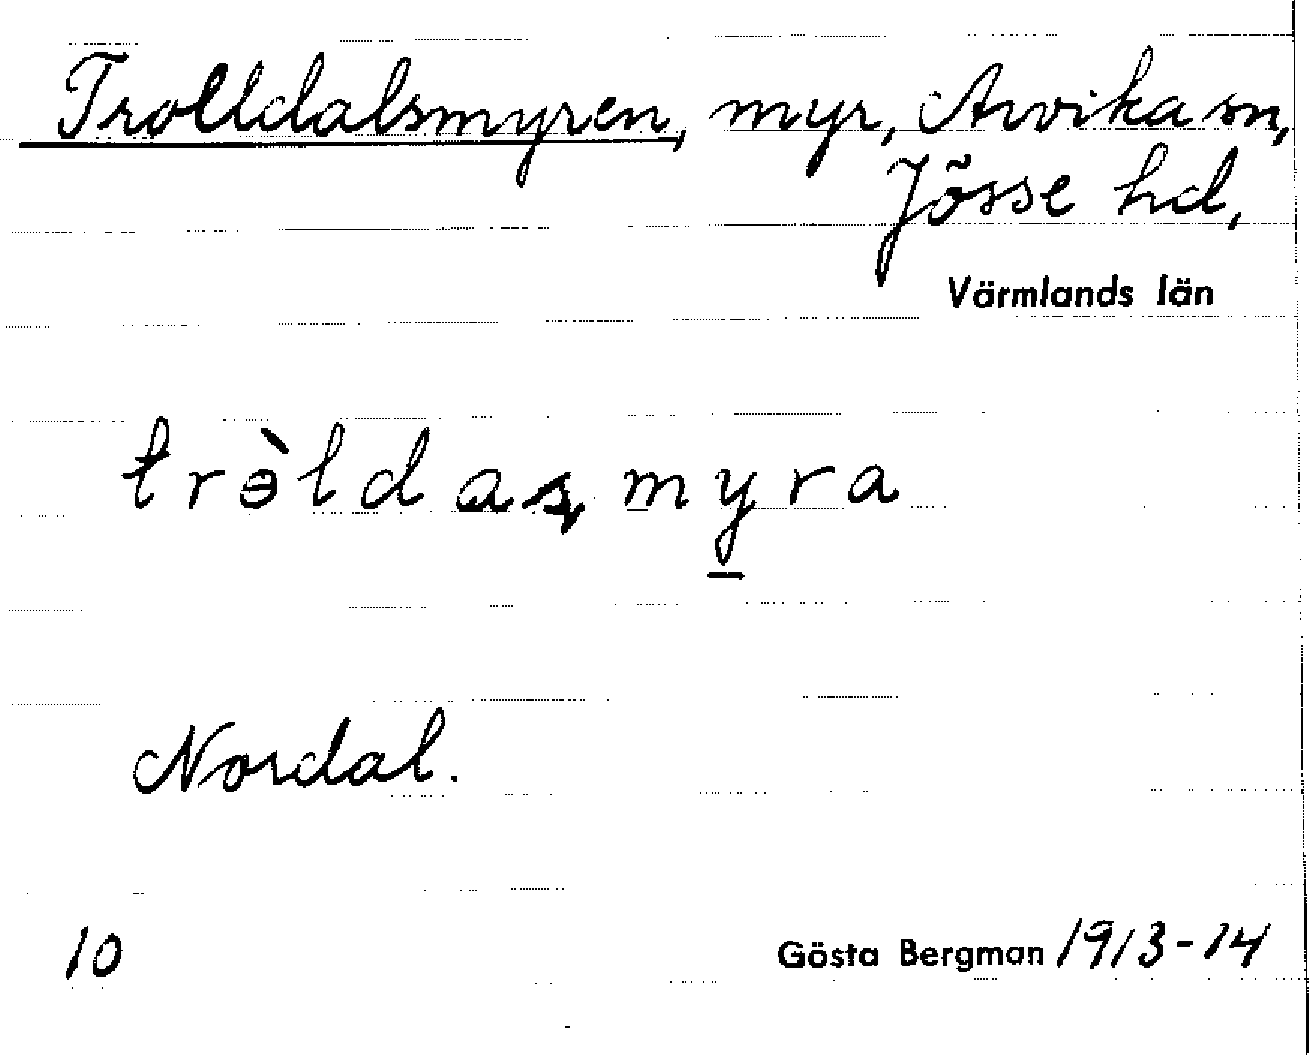 Trolldalsmyren, myr, Arvika sn,
Jösse hd,
Värmlands län
trɘ̀ldas,myra
Nordal.
10
Gösta Bergman 1913-14